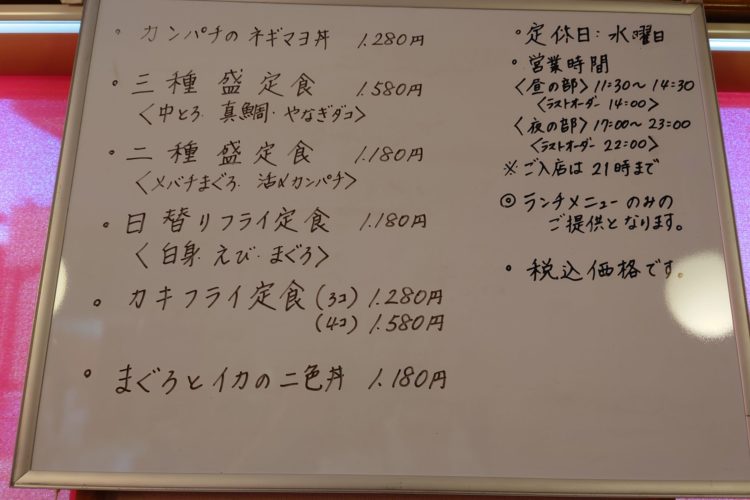 ・カンパチのネギマヨ丼 1.280円
・三種盛定食 1.580円
〈中とろ.真鯛.やなぎダコ〉
・二種盛定食 1.180円
〈メバチまぐろ.活〆カンパチ〉
・日替りフライ定食 1.180円
〈白身.えび.まぐろ〉
・カキフライ定食(3コ) 1.280円
(4コ) 1.580円
・まぐろとイカの二色丼 1.180円
・定休日:水曜日
・営業時間
〈昼の部〉11:30〜14:30
〈ラストオーダー 14:00〉
〈夜の部〉17:00〜23:00
〈ラストオーダー 22:00〉
※ご入店は21時まで
◎ランチメニューのみの
ご提供となります。
・税込価格です。